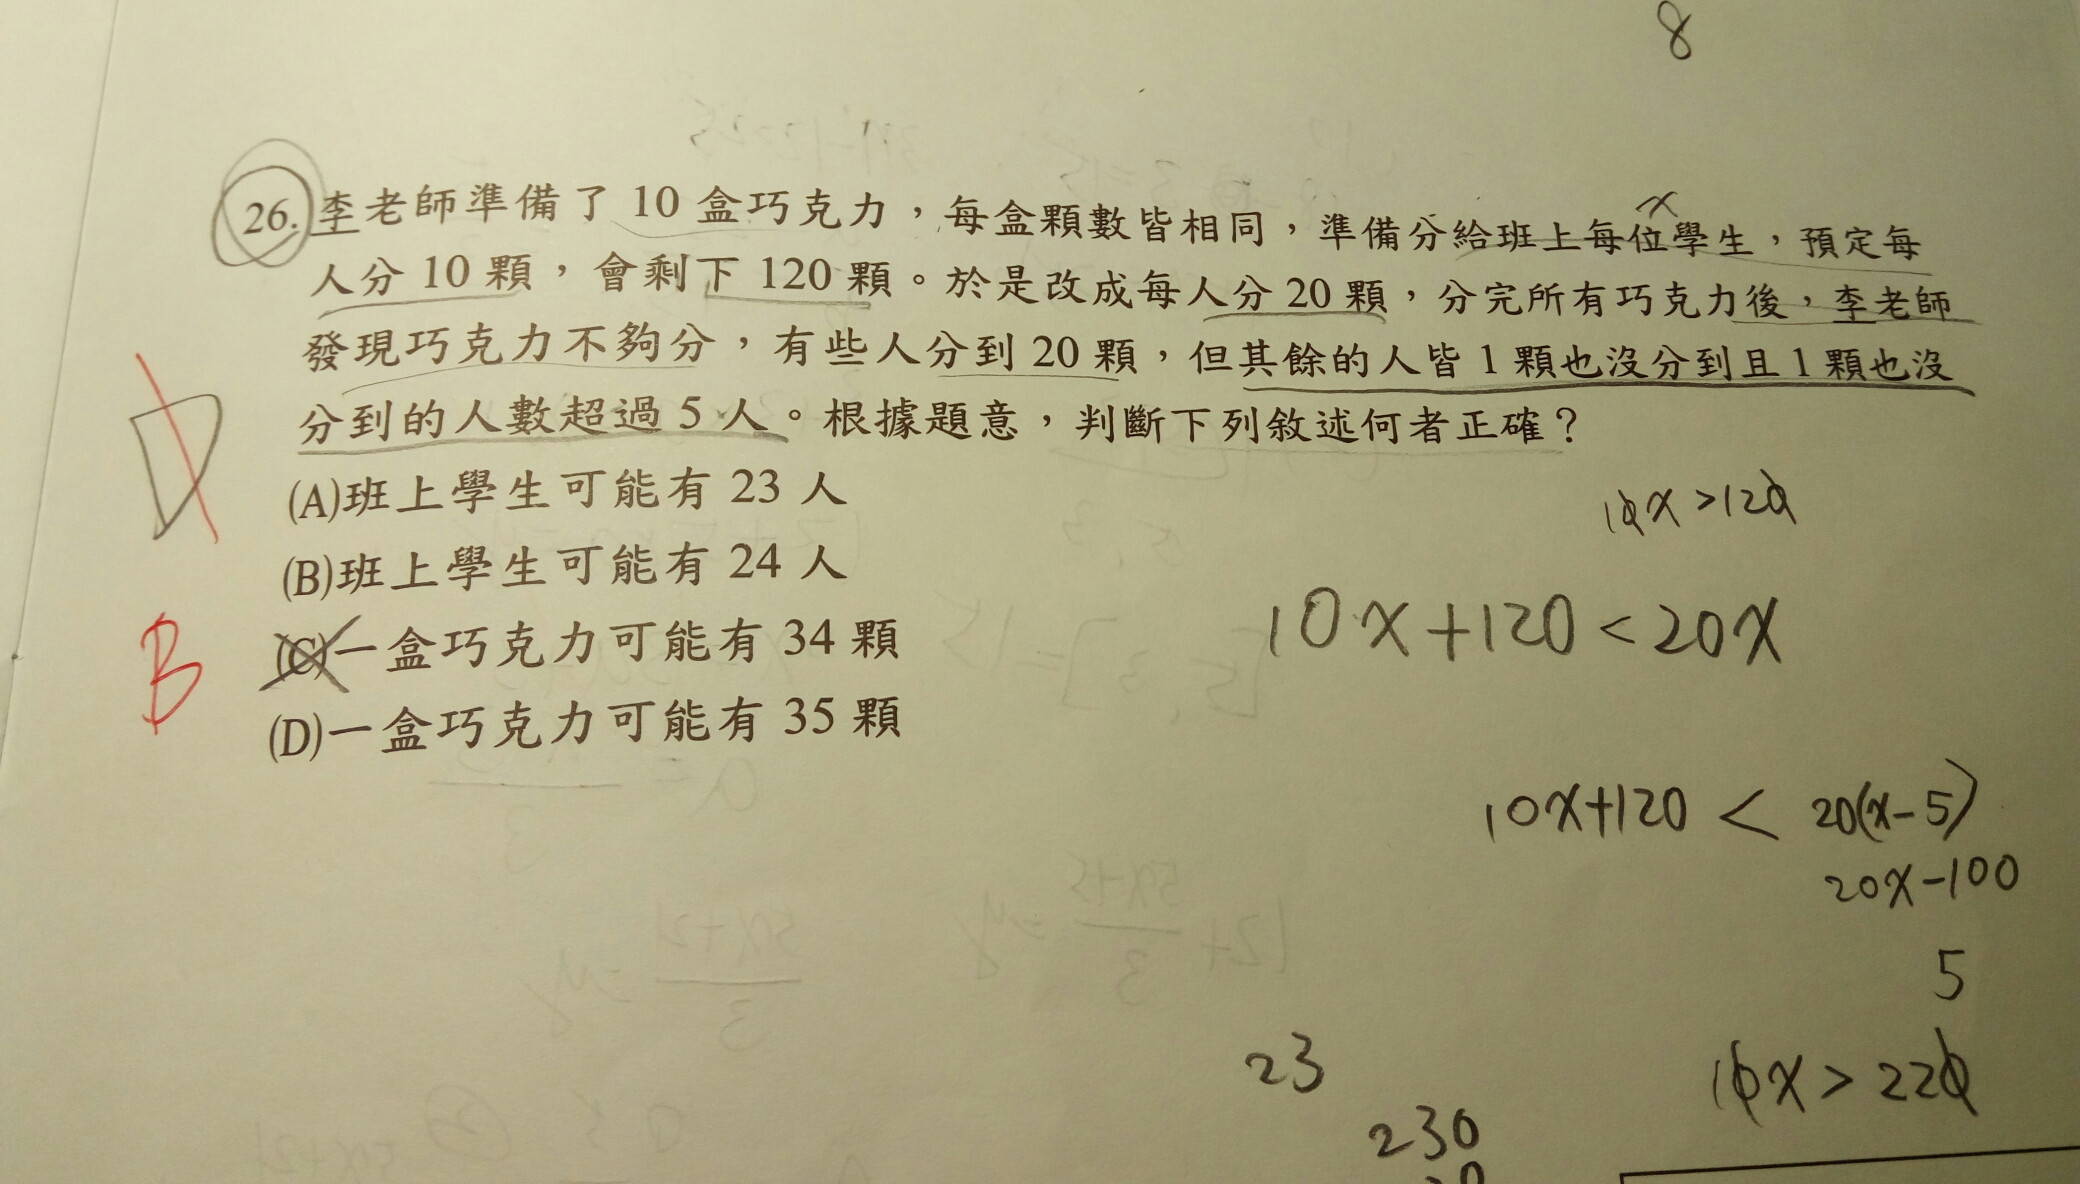 8
x
26. 李老師準備了 10 盒巧克力，每盒顆數皆相同，準備分給班上每位學生，預定每
人分 10 顆，會剩下 120 顆。於是改成每人分 20 顆，分完所有巧克力後，李老師
發現巧克力不夠分，有些人分到 20 顆，但其餘的人皆 1 顆也沒分到且 1 顆也沒
分到的人數超過 5 人。根據題意，判斷下列敘述何者正確？
(A)班上學生可能有 23 人
10x>120
(B)班上學生可能有 24 人
10x+120<20x
B
(C)一盒巧克力可能有 34 顆
(D)一盒巧克力可能有 35 顆
10x+120 < 20(x-5)
20x-100
5
23
10x > 220
230